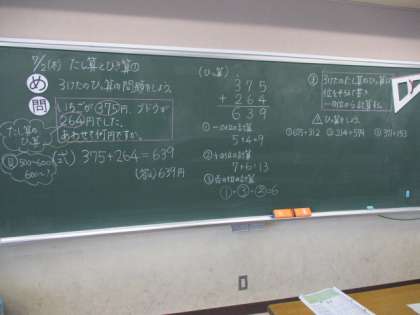 7/2(木) たし算とひき算の
め 3けたのひっ算の問題をしよう。
問 いちごが375円、ブドウが
264円でした。
あわせて何円ですか。
たし算の
ひっ算
500~600
600~?
(しき) 375+264=639
(答え)639円
(ひっ算)
375
+ 264
639
①一の位の計算
5+4=9
②十の位の計算
7+6=13
③百の位の計算
①+③+②=6
3けたのたし算のひっ算は
位をそろえて書き
一の位から計算する。
ひっ算をしよう。